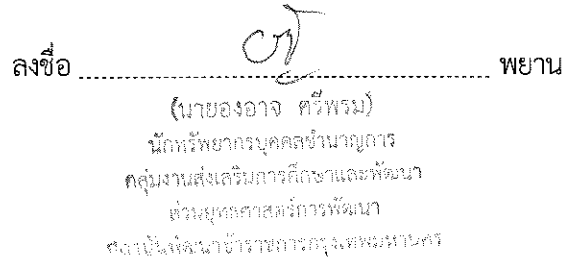 ลงชื่อ ................................ พยาน
(นายองอาจ ศรีพรม)
นักทรัพยากรบุคคลชำนาญการ
กลุ่มงานส่งเสริมการศึกษาและพัฒนา
ส่วนยุทธศาสตร์การพัฒนา
สถาบันพัฒนาข้าราชการกรุงเทพมหานคร